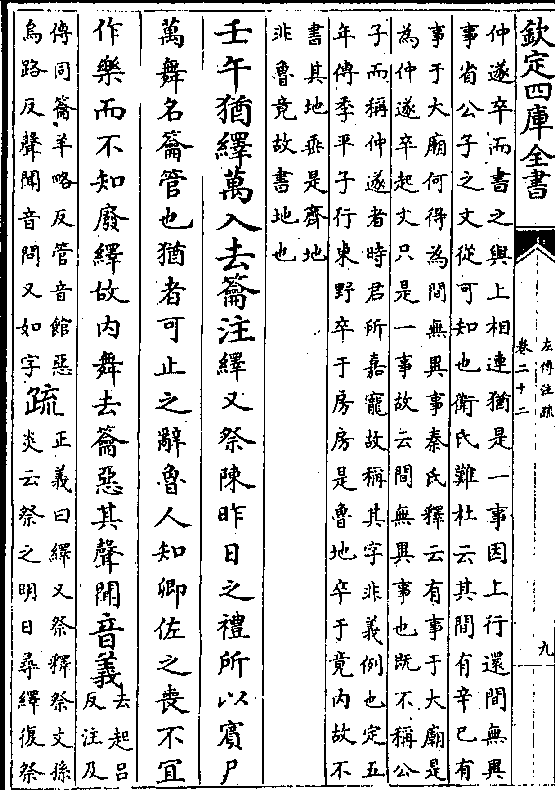 欽定四庫全書
左傳注疏
卷二十二
九
仲遂卒而書之與上相連猶是一事因上行還間無異
事省公子之文從可知也衛氏難杜云其間有辛巳有
事于大廟何得為間無異事秦氏釋云有事于大廟是
為仲遂卒起文只是一事故云間無異事也既不稱公
子而稱仲遂者時君所嘉寵故稱其字非義例也定五
年傳季平子行東野卒于房房是魯地卒于竟內故不
書其地垂是齊地
非魯竟故書地也
壬午猶繹萬入去籥注繹又祭陳昨日之禮所以賓尸
萬舞名籥管也猶者可止之辭魯人知卿佐之喪不宜
作樂而不知廢繹故內舞去籥惡其聲聞音義去起呂
反注及
傳同籥羊略反管音館惡
烏路反聲聞音問又如字疏正義曰繹又祭釋祭文孫
炎云祭之明日尋繹復祭